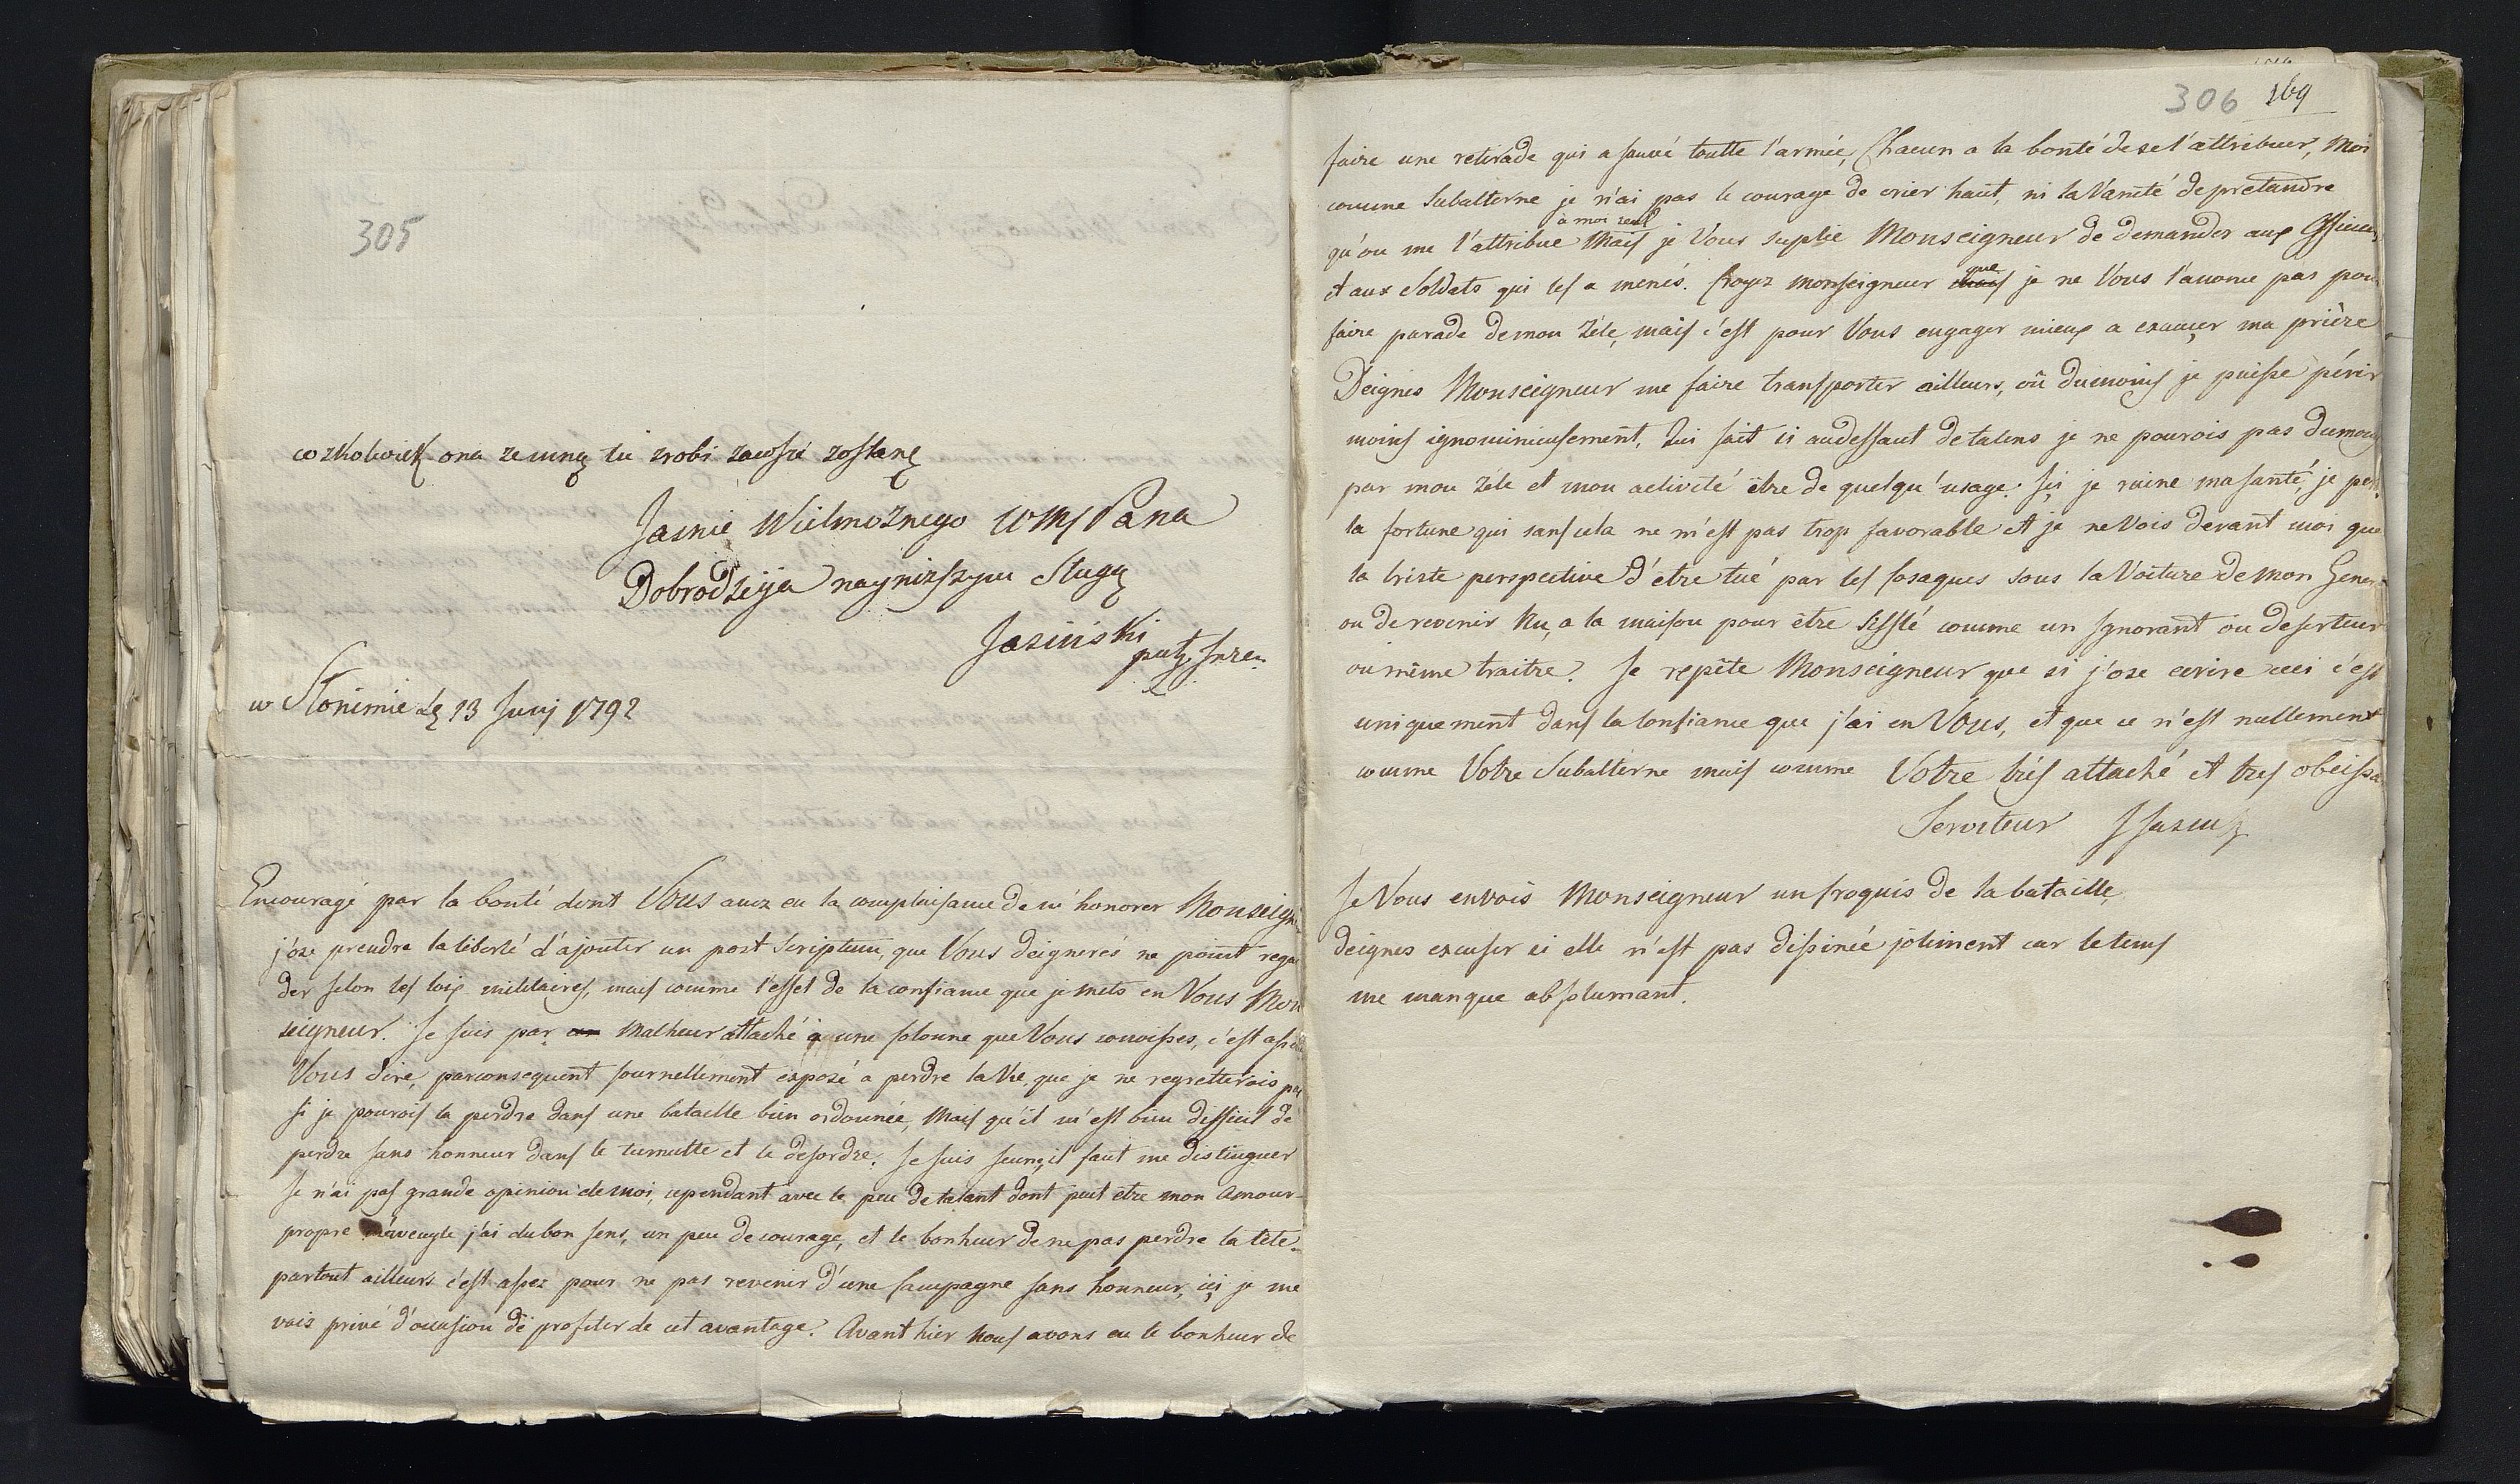 305
cozkolwiek ona zemną tu zrobi zawsze zostanę
Jaśnie Wielmożnego WMsPana
Dobrodzieja nayniższym Sługą
Jasiński
w Słonimie dę 13 Junj 1792
Encouragé par la bonté dont Vous avez eu la complaisance de m'honorer Monseign
j'ose prendre la liberté d'ajouter un post Scriptum, que Vous deignerés ne point regar
der selon les loix militaires, mais comme l'effet de la confiance que je mets en Vous Mon
seigneur. Je suis par Malheur attaché a une Colonne que Vous connoisses, c'est assé
Vous dire, parconsequent Journellement exposé a perdre la Vie que je ne regretterois pas
si je pourois la perdre dans une bataille bien ordonnée, Mais qu'il m'est bien difficil de
perdre sans honneur dans le tumulte et le desordre. Je suis Jeune, il faut me distinguer
Je n'ai pas grande opinion de moi, cependant avec le peu de talent dont peut être mon Amour-
propre m'aveugle j'ai du bon sens, un peu de courage, et le bonheur de ne pas perdre la tête
partout ailleurs c'est assez pour ne pas revenir d'une Campagne sans honneur, içi je me
vois privé d'occasion de profiter de cet avantage. Avant hier Nous avons eu le bonheur de
306 169
faire une retirade qui a sauvé toutte l'armée, Chacun a la bonté de se l'attribuer, Moi
comme Subalterne je n'ai pas le courage de crier haut, ni la Vanité de pretandre
qu'on me l'attribue à moi seul Mais je Vous suplie Monseigneur de demander aux Officiers
et aux Soldats qui les a menés. Croyez Monseigneur que je ne Vous l'avoue pas pour
faire parade de mon Zéle, mais c'est pour Vous engager mieux a exauçer ma prière
Deignes Monseigneur me faire transporter ailleurs, où dumoins je puisse périr
moins ignominieusement, Qui sait si audeffaut de talens je ne pourois pas dumoins
par mon Zéle et mon activité être de quelqu'usage. Içi je ruine ma santé, je perd
la fortune qui sans cela ne m'est pas trop favorable et je ne Vois devant moi que
la triste perspective d'etre tué par les Cosaques sous la Voiture de mon General
ou de revenir Nu, a la maison pour être sifflé comme un Ignorant ou deserteur
ou même traitre. Je repête Monseigneur que si j'ose ecrire ceci c'est
uniquement dans la Confiance que j'ai en Vous, et que ce n'est nullement
comme Votre Subalterne mais comme Votre trés attaché et tres obeissa
Serviteur JJasiń
Je Vous envois Monseigneur un Croquis de la bataille,
deignes excuser si elle n'est pas dessinée joliment car le tems
me manque absolumant.